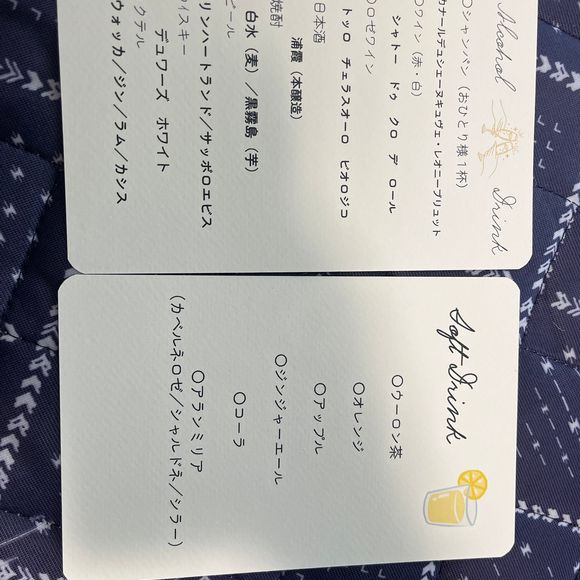 Alcohol Drink
○シャンパン（おひとり様１杯）
カナールデュシェーヌキュヴェ・レオニーブリュット
○ワイン（赤・白）
シャトー ドゥ クロ デ ロール
○ロゼワイン
トッロ チェラスオーロ ビオロジコ
日本酒
浦霞（本醸造）
焼酎
白水（麦）／黒霧島（芋）
ビール
リンハートランド／サッポロエビス
ィスキー
デュワーズ ホワイト
クテル
ウォッカ／ジン／ラム／カシス
Soft Drink
○ウーロン茶
○オレンジ
○アップル
○ジンジャーエール
○コーラ
○アランミリア
（カベルネロゼ／シャルドネ／シラー）